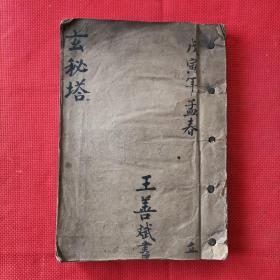 戊寅年孟春
玄秘塔
王善斌書